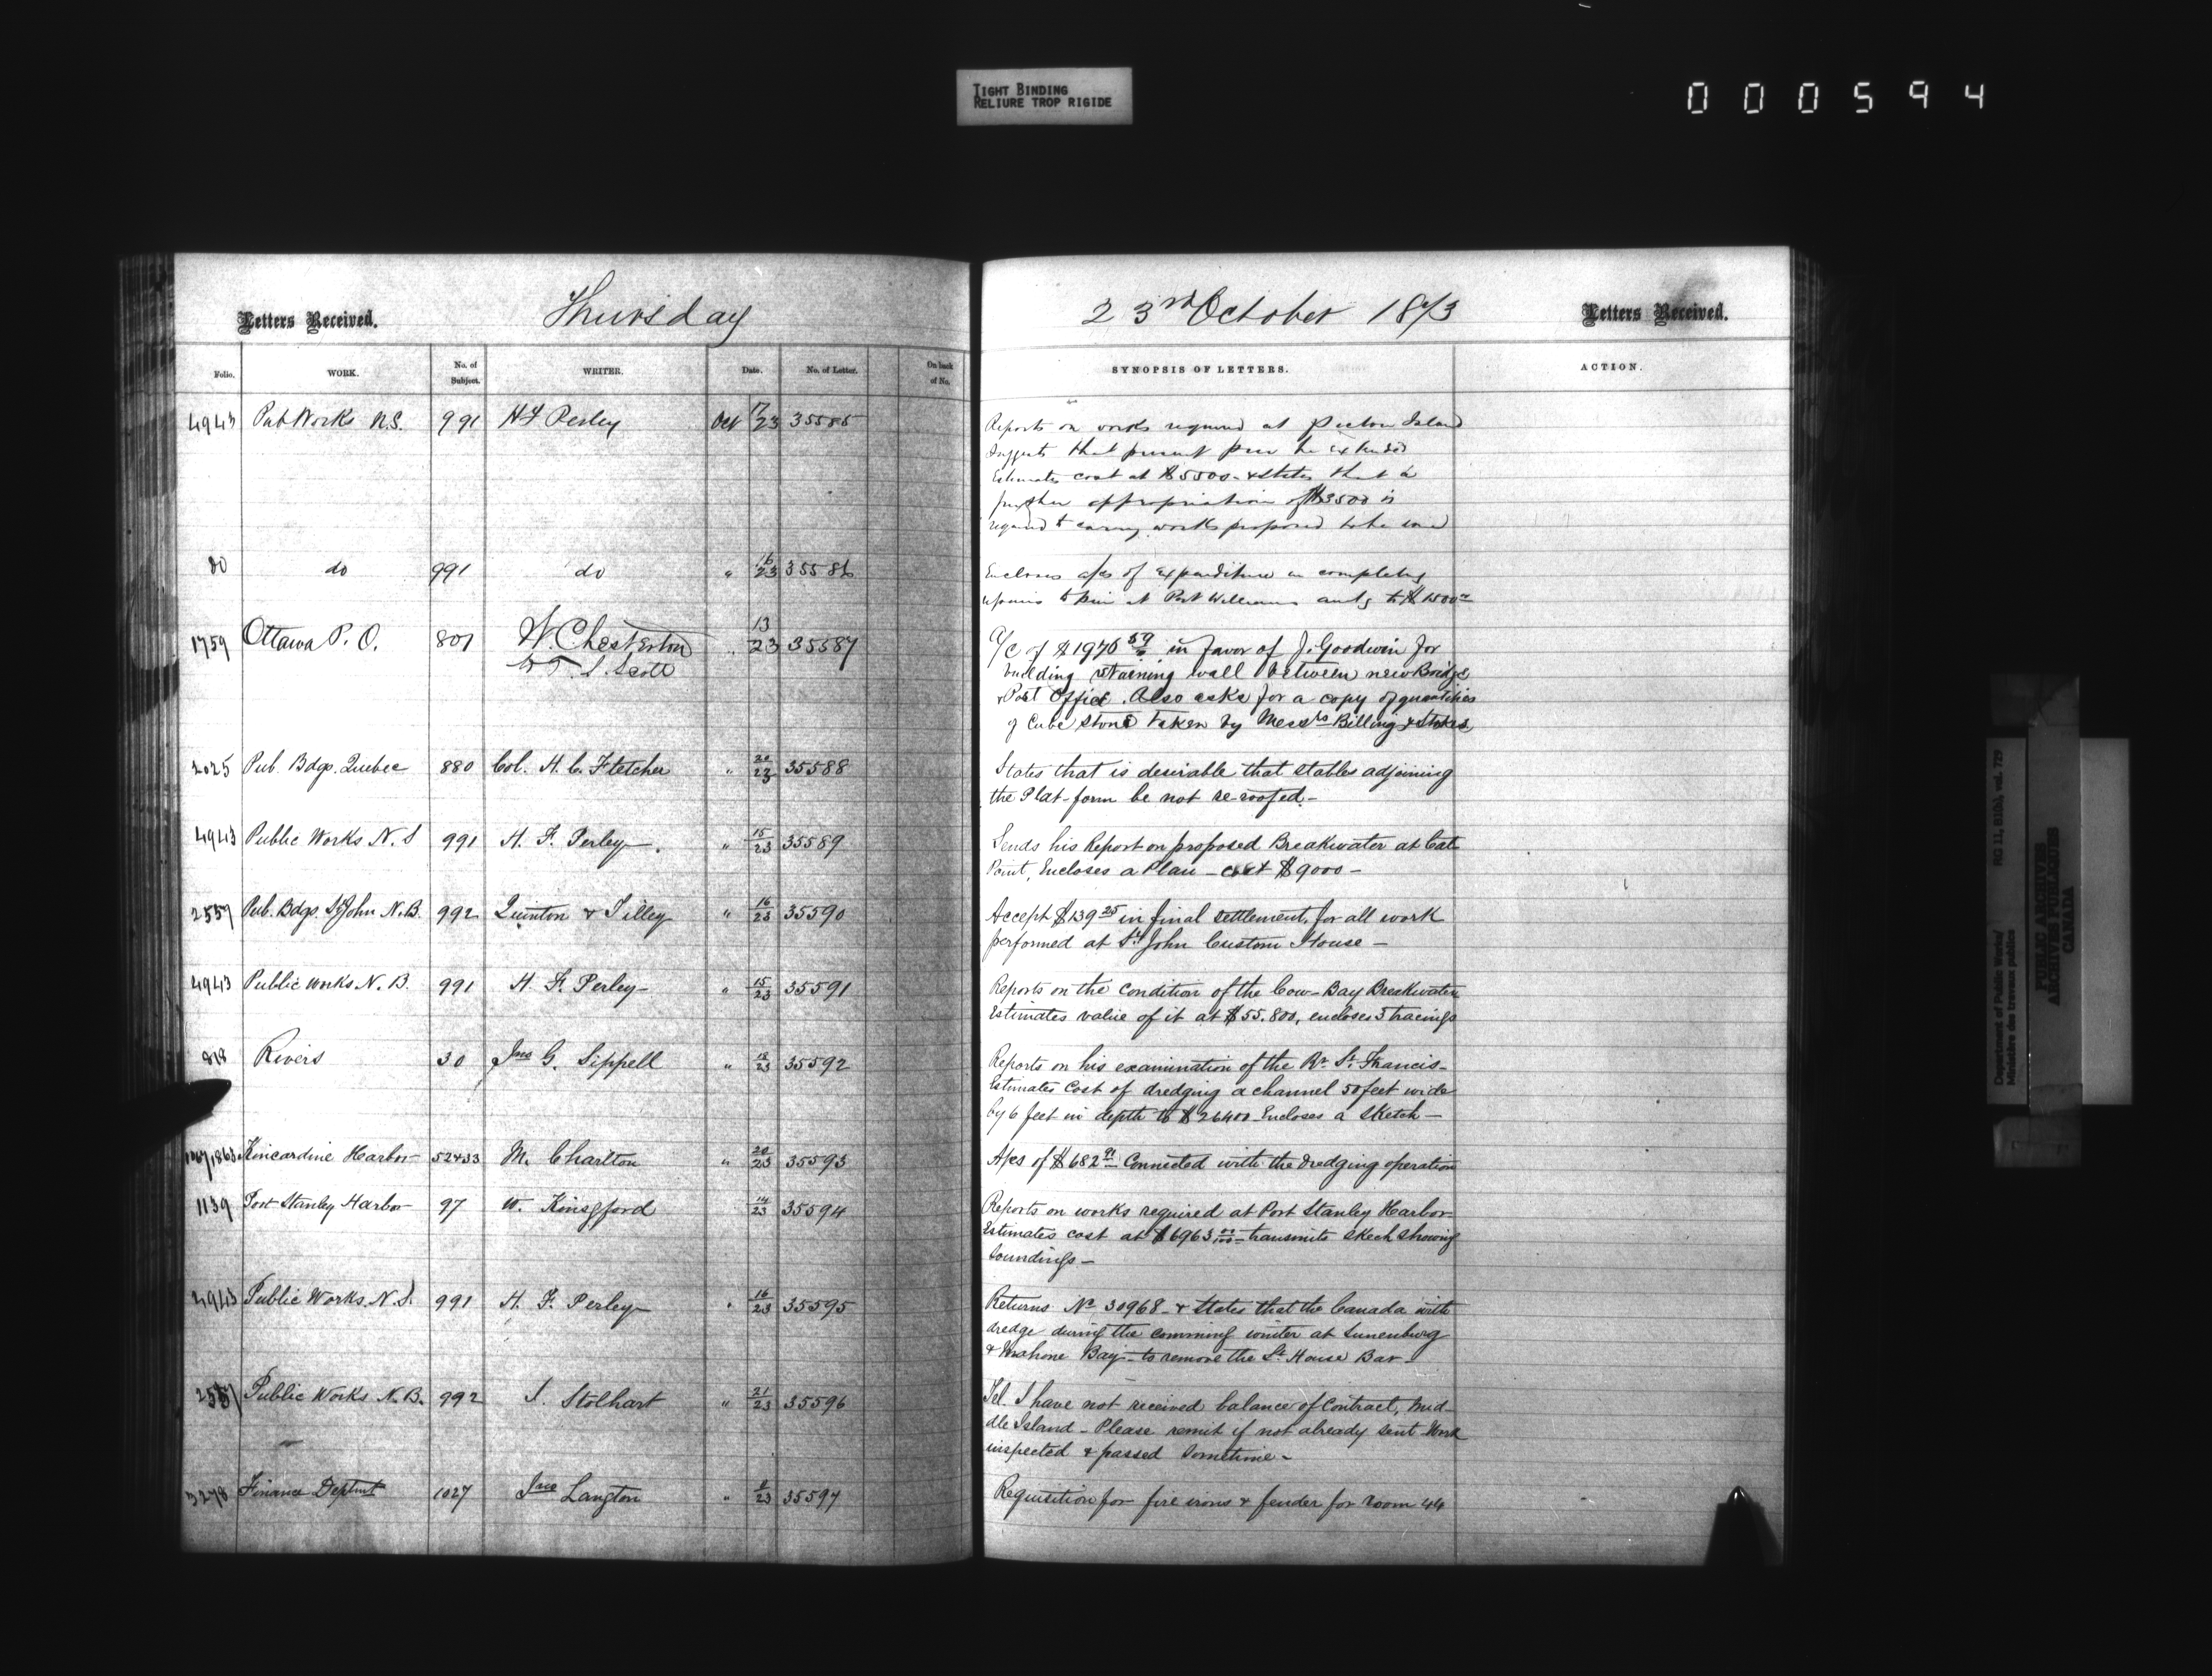 TIGHT BINDING
RELIURE TROP RIGIDE
000594
Letters Received.
Thursday
23rd October 1873
Letters Received.
Folio.
WORK.
No. of Subject.
WRITER.
Date.
No. of Letter.
On back of No.
SYNOPSIS OF LETTERS.
ACTION.
4943 Pub Works N.S. 991 H F Perley Oct 17/23 35585
Reports on works required at Pictou Island
Suggests that present pier be extended
Estimates cost at $5500 - & states that a
further appropriation of $3500 is
required to carry works proposed to be
do do 991 do " 16/23 35586
Encloses a/cs of expenditure in completing
repairs to pier at Port Williams amtg to $1500
1759 Ottawa P. O. 801 W. Chesterton " 13/23 35587
T. S. Scott
A/c of $1976 59 in favor of J. Goodwin for
building retaining wall between new Bridge
& Post Office. Also asks for a copy of quantities
of Cube stone taken by Messrs Billing &
2025 Pub. Bdgs. Quebec 880 Col. H. C. Fletcher " 20/23 35588
States that is desirable that stables adjoining
the Plat-form be not re-roofed -
4943 Public Works N. S 991 H. F. Perley - " 15/23 35589
Sends his Report on proposed Breakwater at Cat
Point, Encloses a Plan - cost $9000 -
2559 Pub. Bdgs. St John N.B. 992 Quinton & Tilley " 16/23 35590
Accept $139 25 in final settlement, for all work
performed at St John Custom House -
4943 Public Works N. B. 991 H. F. Perley - " 15/23 35591
Reports on the condition of the Cow-Bay Breakwater
Estimates value of it at $55.800, encloses 3 tracings
818 Rivers 30 Jno G. Sippell " 18/23 35592
Reports on his examination of the Rr St Francis -
Estimates Cost of dredging a channel 50 feet wide
by 6 feet in depth to $26400 - Encloses a sketch -
Kincardine Harbor 52433 M. Charlton " 20/23 35593
A/cs of $682 Connected with the dredging operation
1139 Port Stanley Harbor 97 W. Kingsford 14/23 35594
Reports on works required at Port Stanley Harbor -
Estimates cost at $6963 00/100 - transmits skech showing
Soundings -
4943 Public Works. N. S. 991 H. F. Perley - " 16/23 35595
Returns No 30968 - & states that the Canada with
dredge during the comming winter at Lunenburg
& Mahone Bay - to remove the Lt House Bar -
2551 Public Works N. B. 992 Stolhart " 21/23 35596
Tel. I have not received balance of Contract, Mid-
dle Island - Please remit if not already sent - Work
inspected & passed Sometime -
3278 Finance Deptmt 1027 Jno Langton " 8/23 35597
Requisition for fire irons & fender for room 44
Department of Public Works/ RG 11, B1(b), vol. 729
Ministère des travaux publics
PUBLIC ARCHIVES
ARCHIVES PUBLIQUES
CANADA